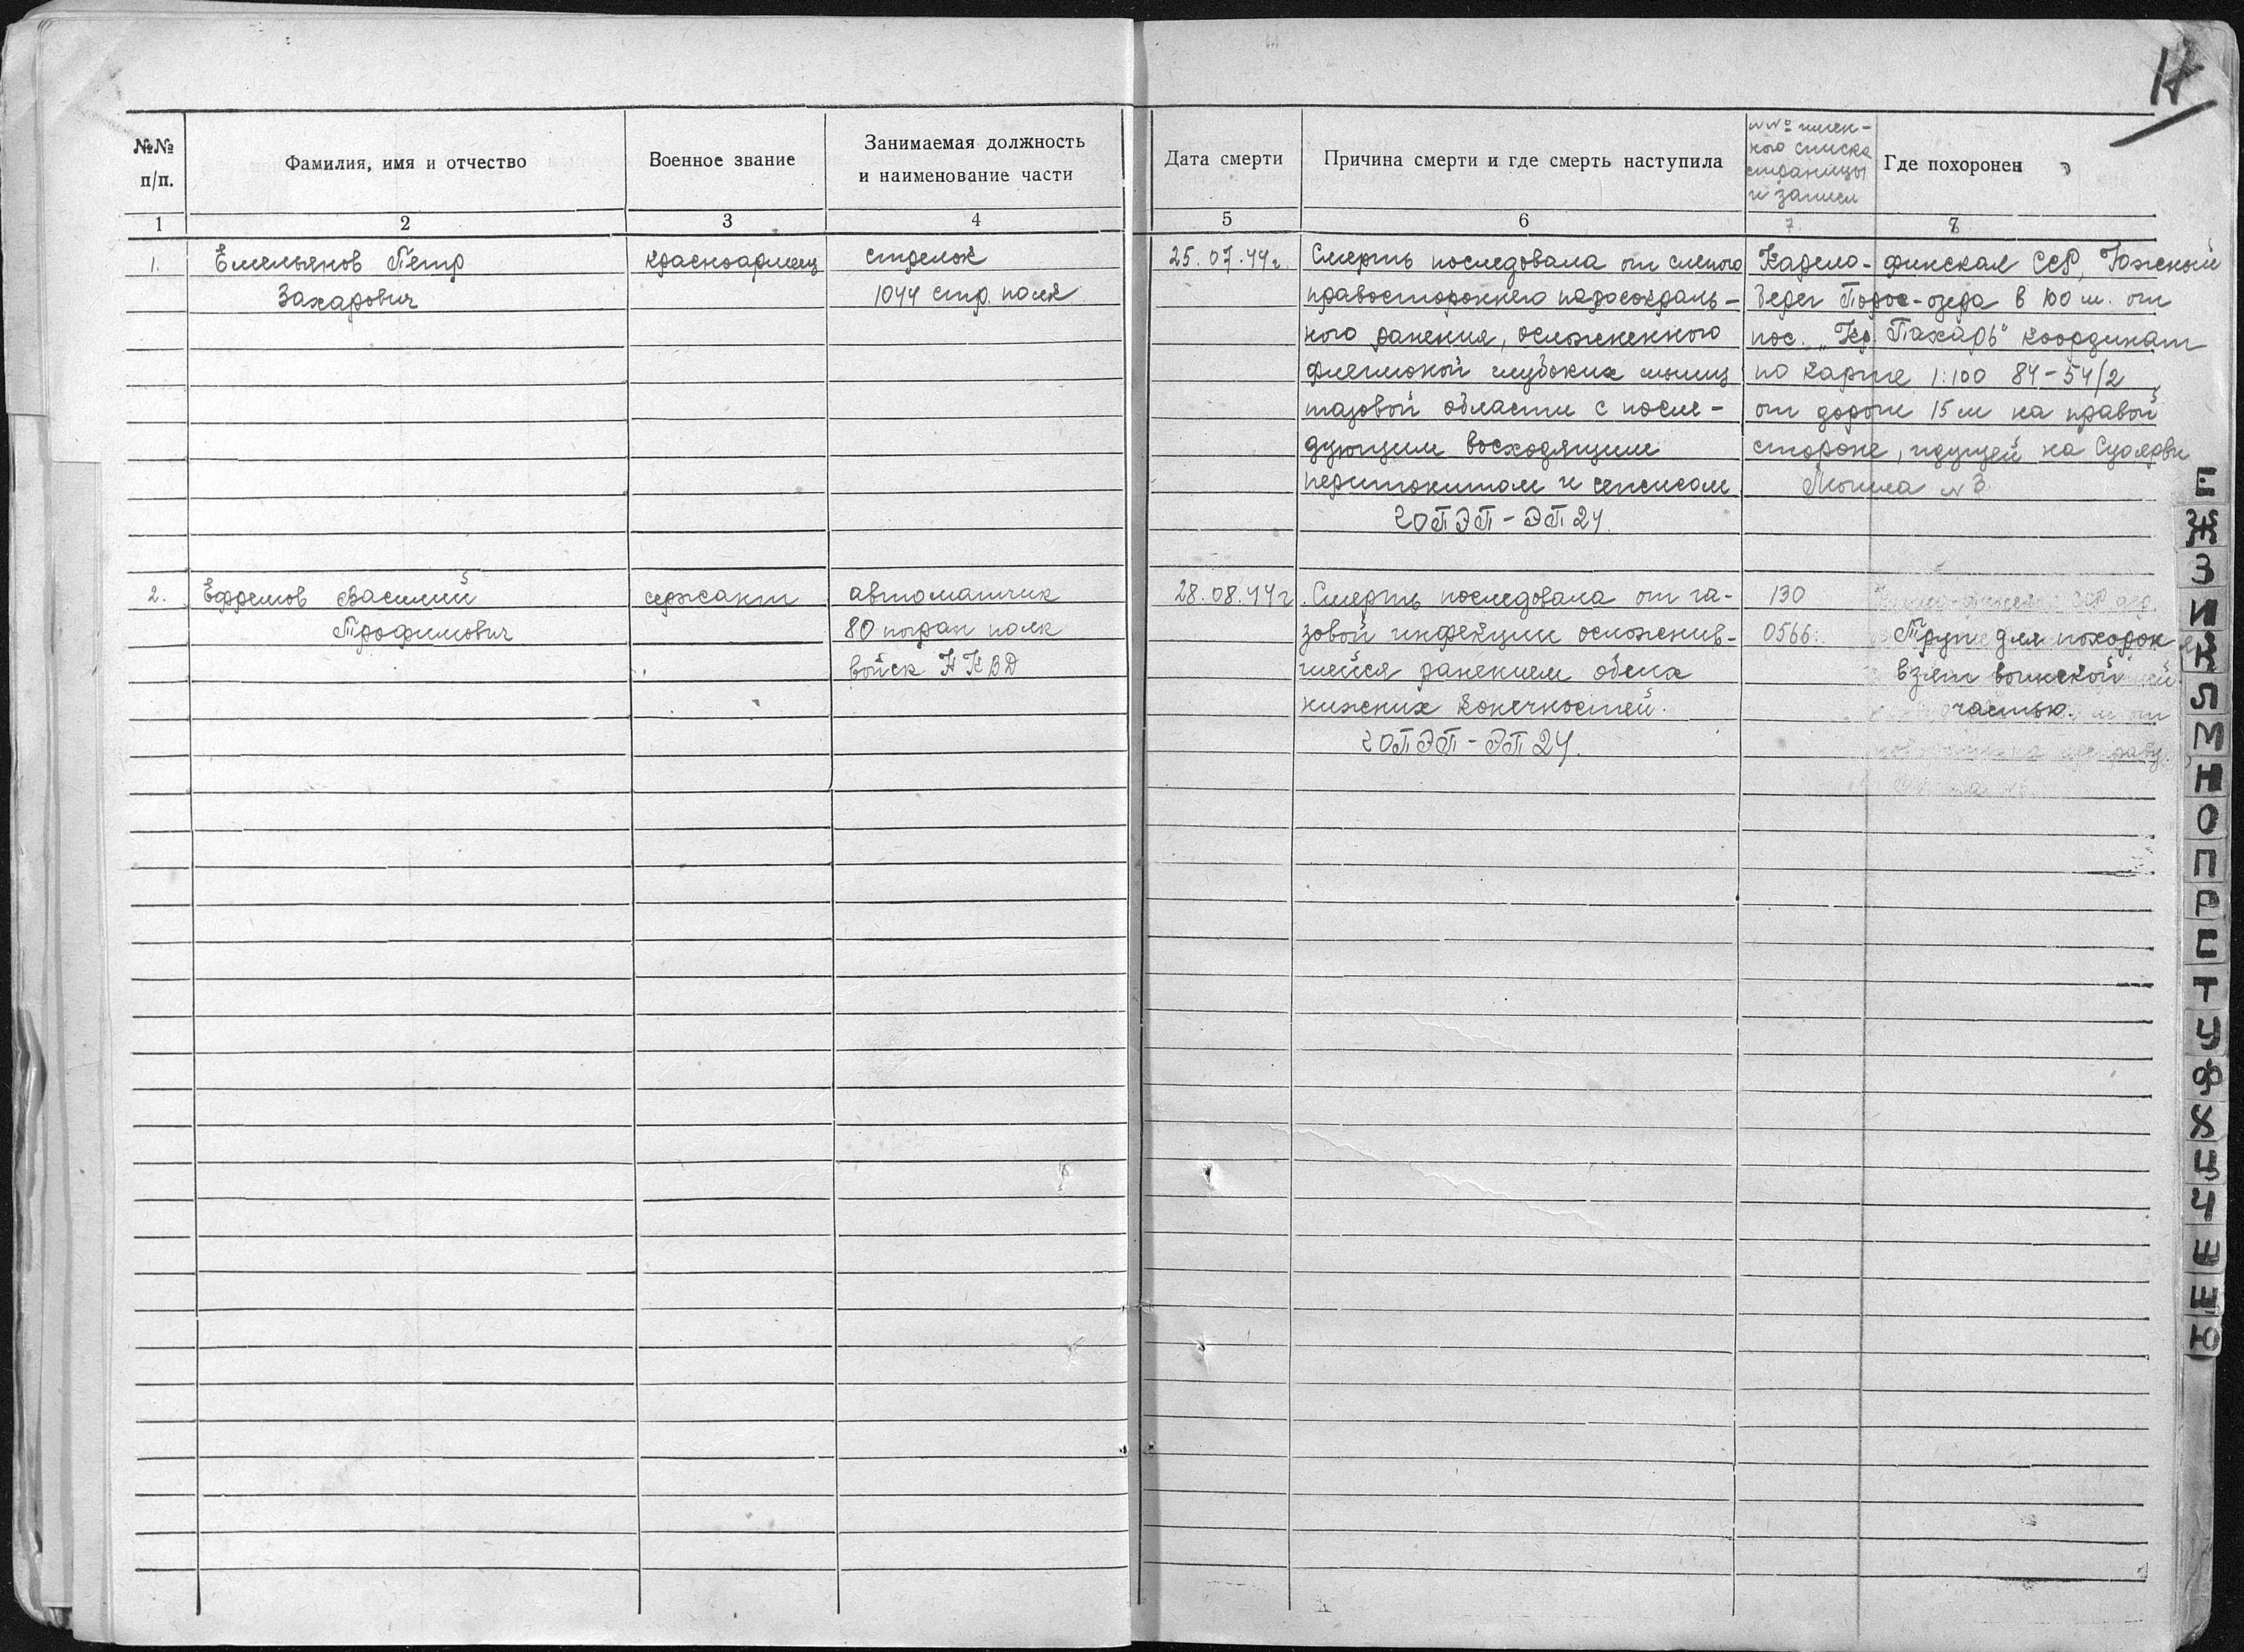 №№ п/п.
Фамилия, имя и отчество
Военное звание
Занимаемая должность
и наименование части
Дата смерти
Причина смерти и где смерть наступила
№№ имен-
ного списка
страницы
и записи
Где похоронен
1 2 3 4 5 6 7 8
1. Емельянов Петр
Захарович
красноармеец
стрелок
1044 стр. полк
25.07.44г.
Смерть последовала от слепого
правостороннего парасакраль-
ного ранения, осложненного
флегмоной глубоких мышц
тазовой области с после-
дующим восходящим
перитонитом и сепсисом
ЭП 24.
Карело-финская ССР, Южный
берег Порос-озера в 100 м. от
пос. „Кр. Пахарь" координат
по карте 1:100 84-54/2
от дороги 15 м на правой
стороне, идущей на Суоярви
Могила № 3.
2. Ефремов Василий
Трофимович
сержант
автоматчик
80 погран полк
войск НКВД
28.08.44г.
Смерть последовала от га-
зовой инфекции осложнив-
шейся ранением обеих
нижних конечностей.
ЭП 24.
130
0566.
Труп для похорон
взят воинской
частью.
Е
Ж
З
И
К
Л
М
Н
О
П
Р
С
Т
У
Ф
Х
Ц
Ч
Ю